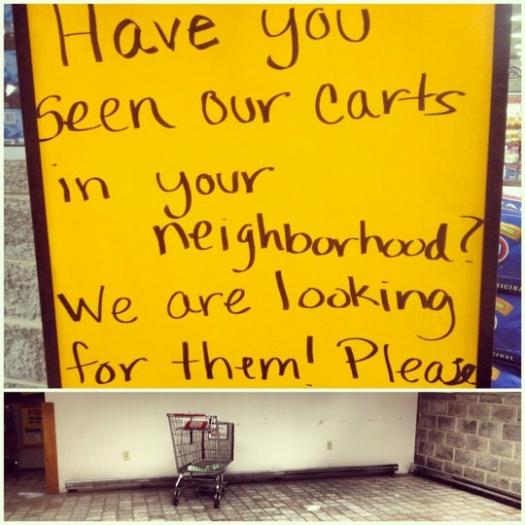 Have you
Seen our Carts
in your
neighborhood?
We are looking
for them! Please